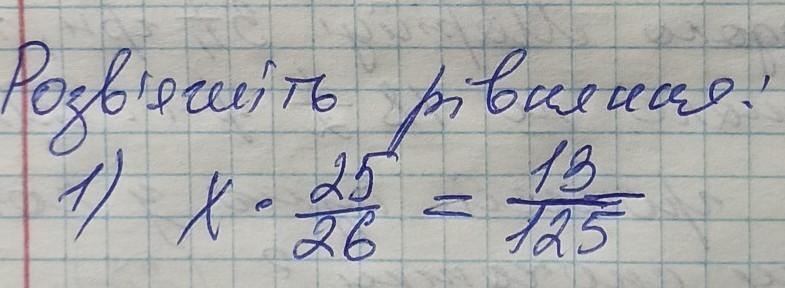 Розв'яжіть рівняння:
1) x · 25/26 = 13/125